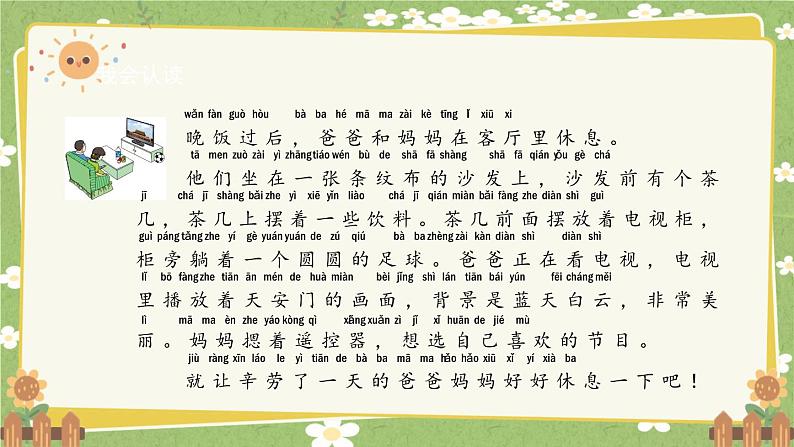 我会认读
wǎn fàn guò hòu bà ba hé mā ma zài kè tīng lǐ xiū xi
晚饭过后，爸爸和妈妈在客厅里休息。
tā men zuò zài yì zhāng tiáo wén bù de shā fā shàng shā fā qián yǒu gè chá
他们坐在一张条纹布的沙发上，沙发前有个茶
jī chá jī shàng bǎi zhe yì xiē yǐn liào chá jī qián miàn bǎi fàng zhe diàn shì guì
几，茶几上摆着一些饮料。茶几前面摆放着电视柜，
guì páng tǎng zhe yí gè yuán yuán de zú qiú bà ba zhèng zài kàn diàn shì diàn shì
柜旁躺着一个圆圆的足球。爸爸正在看电视，电视
lǐ bō fàng zhe tiān ān mén de huà miàn bèi jǐng shì lán tiān bái yún fēi cháng měi
里播放着天安门的画面，背景是蓝天白云，非常美
lì mā ma èn zhe yáo kòng qì xiǎng xuǎn zì jǐ xǐ huān de jié mù
丽。妈妈摁着遥控器，想选自己喜欢的节目。
jiù ràng xīn láo le yì tiān de bà ba mā ma hǎo hǎo xiū xī yí xià ba
就让辛劳了一天的爸爸妈妈好好休息一下吧！